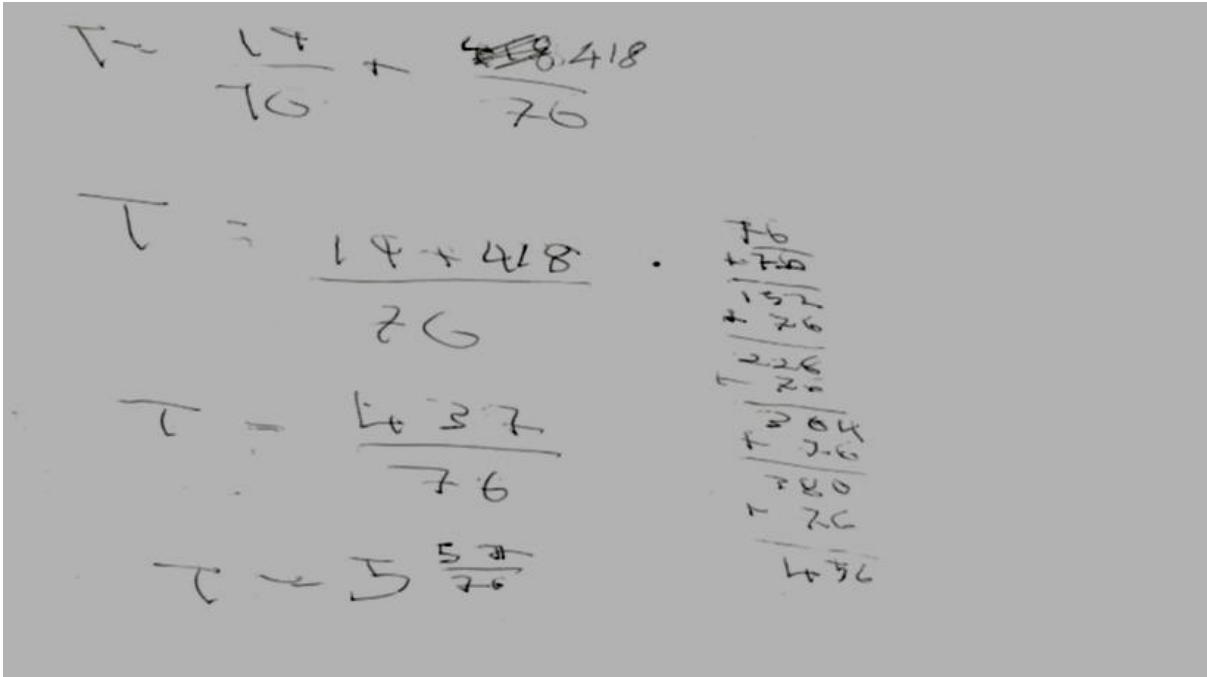 T = 19/76 + 418/76
T = 19 + 418/76
T = 437/76
T = 5 57/76
76
+ 76
152
+ 76
228
+ 76
304
+ 76
380
+ 76
456